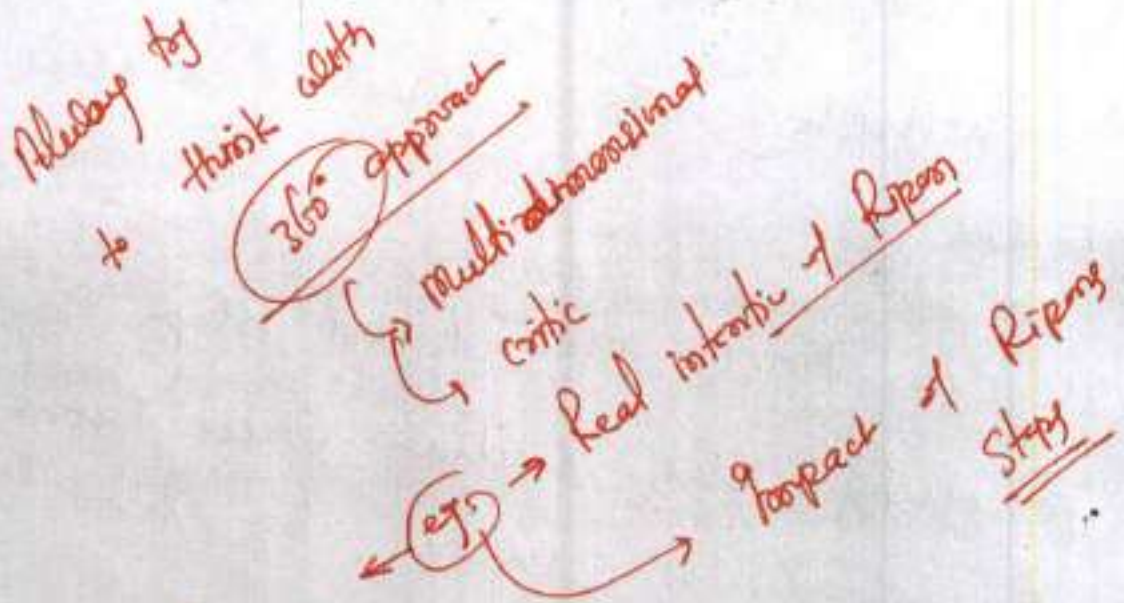 Always try
to think with
360° approach
Multi-dimensional
critic
eg. Real intentic of Ripon
Impact of Ripons
Steps